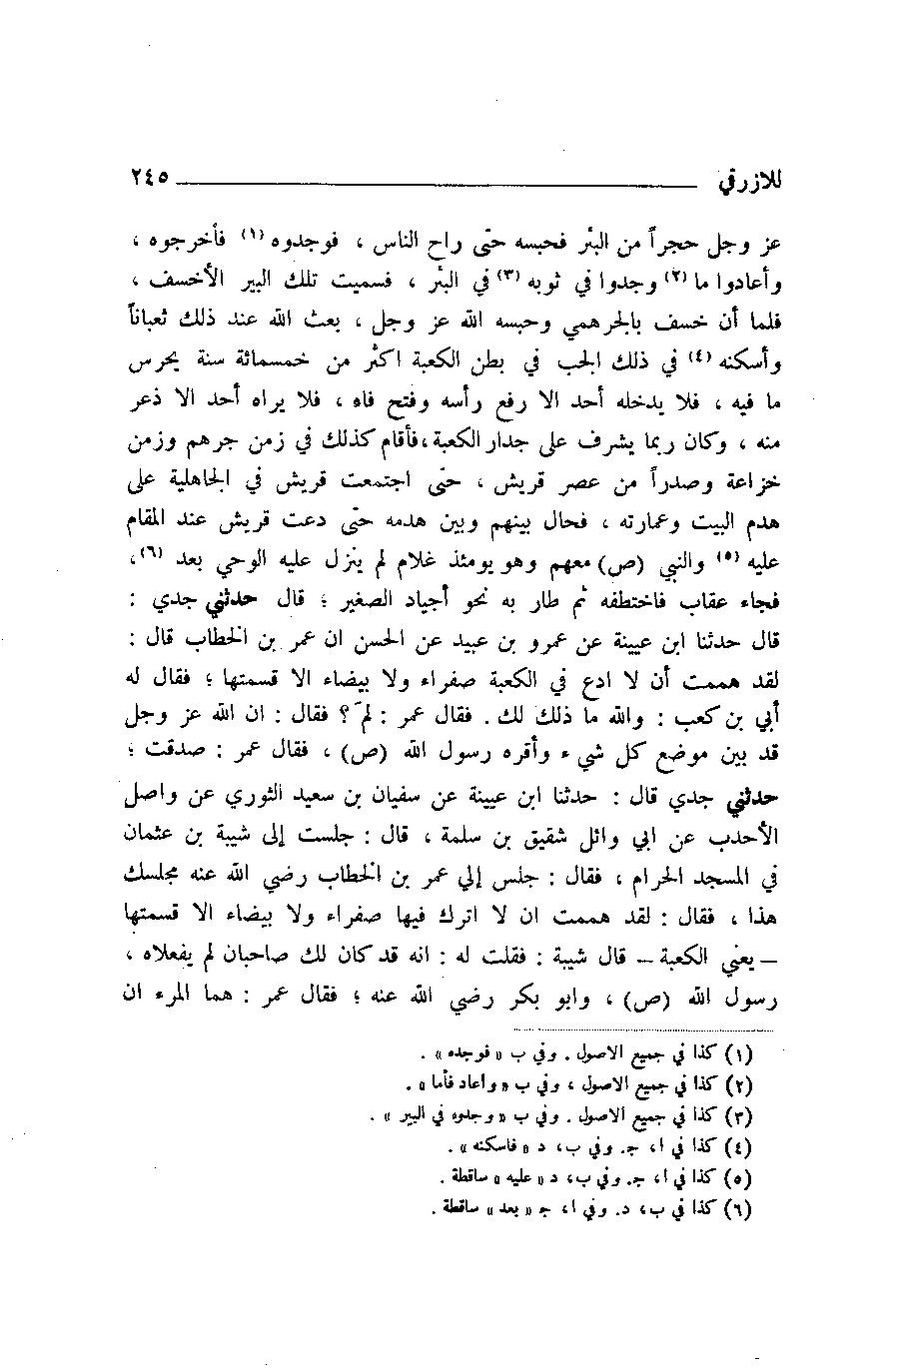 للازرقي ٢٤٥
عز وجل حجراً من البئر فحبسه حتى راح الناس ، فوجدوه (١) فأخرجوه ،
وأعادوا ما (٢) وجدوا في ثوبه (٣) في البئر ، فسميت تلك البير الأخسف ،
فلما أن خسف بالجرهمي وحبسه الله عز وجل ، بعث الله عند ذلك ثعباناً
وأسكنه (٤) في ذلك الجب في بطن الكعبة اكثر من خمسمائة سنة يحرس
ما فيه ، فلا يدخله أحد الا رفع رأسه وفتح فاه ، فلا يراه أحد الا ذعر
منه ، وكان ربما يشرف على جدار الكعبة ،فأقام كذلك في زمن جرهم وزمن
خزاعة وصدراً من عصر قريش ، حتى اجتمعت قريش في الجاهلية على
هدم البيت وعمارته ، فحال بينهم وبين هدمه حتى دعت قريش عند المقام
عليه (٥) والنبي (ص) معهم وهو يومئذ غلام لم ينزل عليه الوحي بعد (٦)،
فجاء عقاب فاختطفه ثم طار به نحو أجياد الصغير ؛ قال حدثني جدي :
قال حدثنا ابن عيينة عن عمرو بن عبيد عن الحسن ان عمر بن الخطاب قال :
لقد هممت أن لا ادع في الكعبة صفراء ولا بيضاء الا قسمتها ؛ فقال له
أبي بن كعب : والله ما ذلك لك . فقال عمر : لمَ ؟ فقال : ان الله عز وجل
قد بين موضع كل شيء وأقره رسول الله (ص) ، فقال عمر : صدقت ؛
حدثني جدي قال : حدثنا ابن عيينة عن سفيان بن سعيد الثوري عن واصل
الأحدب عن ابي وائل شقيق بن سلمة ، قال : جلست إلى شيبة بن عثمان
في المسجد الحرام ، فقال : جلس إلي عمر بن الخطاب رضي الله عنه مجلسك
هذا ، فقال : لقد هممت ان لا اترك فيها صفراء ولا بيضاء الا قسمتها
– يعني الكعبة – قال شيبة : فقلت له : انه قد كان لك صاحبان لم يفعلاه ،
رسول الله (ص) ، وابو بكر رضي الله عنه ؛ فقال عمر : هما المرء ان
(١) كذا في جميع الاصول . وفي ب « فوجده » .
(٢) كذا في جميع الاصول ، وفي ب « واعاد فأما » .
(٣) كذا في جميع الاصول . وفي ب « وجدوه في البير » .
(٤) كذا في ا، ج. وفي ب، د « فاسكنه » .
(٥) كذا في ا، ج. وفي ب، د « عليه » ساقطة .
(٦) كذا في ب، د. وفي ا، ج « بعد » ساقطة .